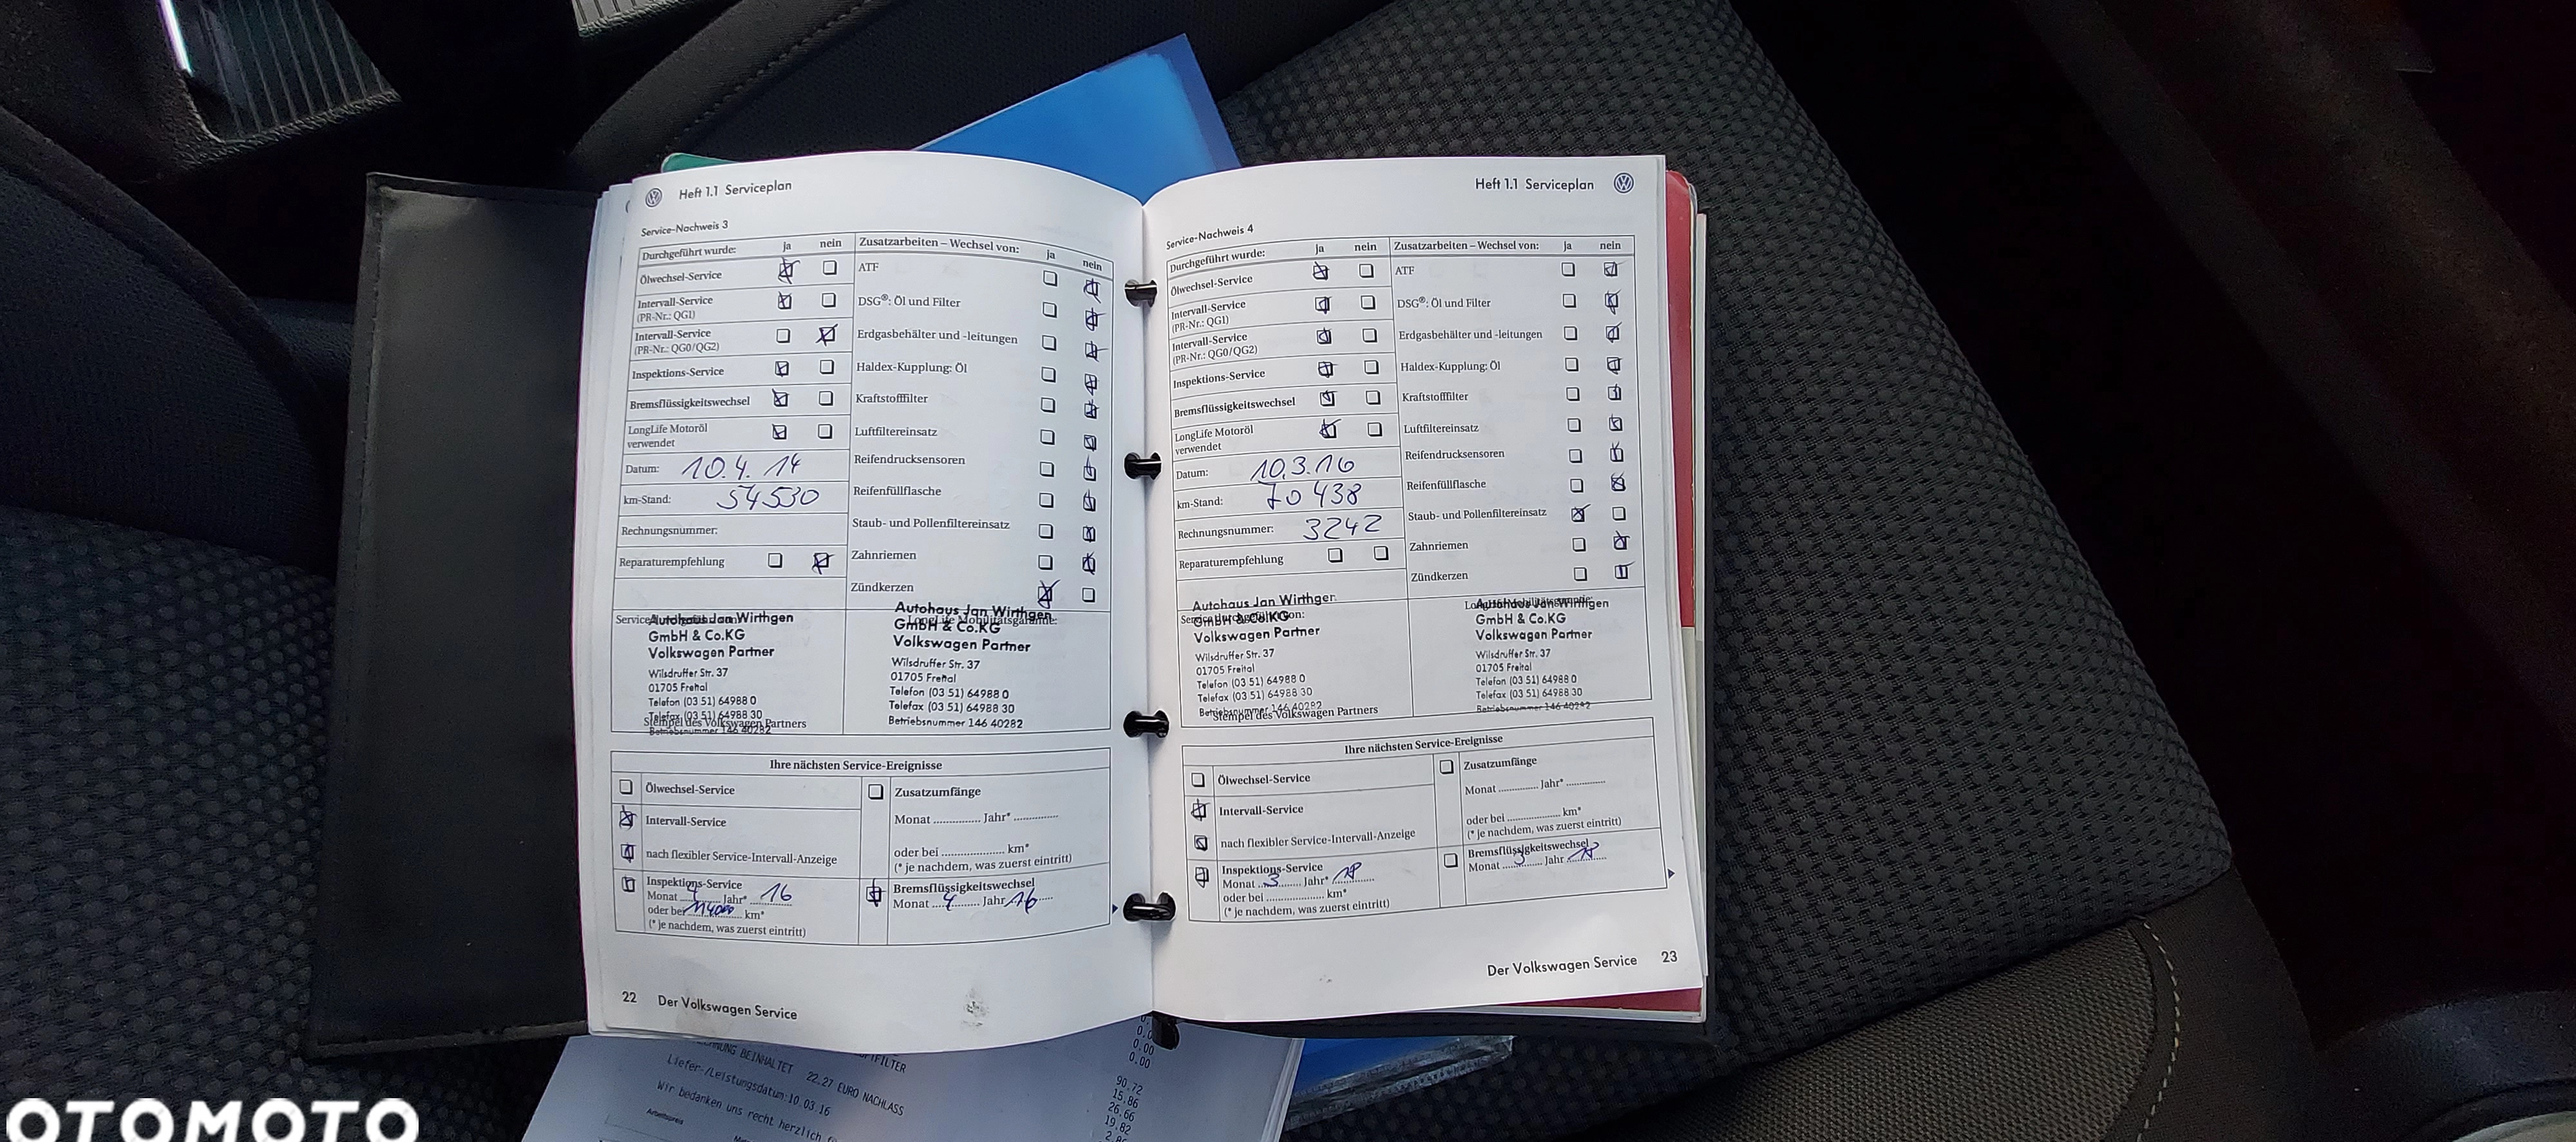 Heft 1.1 Serviceplan
Service-Nachweis 3
Durchgeführt wurde: ja nein
Ölwechsel-Service
Intervall-Service
(PR-Nr.: QG1)
Intervall-Service
(PR-Nr.: QG0/QG2)
Inspektions-Service
Bremsflüssigkeitswechsel
LongLife Motoröl
verwendet
Datum: 10.4.14
km-Stand: 54530
Rechnungsnummer:
Reparaturempfehlung
Zusatzarbeiten – Wechsel von: ja nein
ATF
DSG®: Öl und Filter
Erdgasbehälter und -leitungen
Haldex-Kupplung: Öl
Kraftstofffilter
Luftfiltereinsatz
Reifendrucksensoren
Reifenfüllflasche
Staub- und Pollenfiltereinsatz
Zahnriemen
Zündkerzen
Autohaus Jan Wirthgen
GmbH & Co.KG
Volkswagen Partner
Wilsdruffer Str. 37
01705 Freital
Telefon (03 51) 64988 0
Telefax (03 51) 64988 30
Stempel des Volkswagen Partners
Betriebsnummer 146 40282
Autohaus Jan Wirthgen
LongLife Mobilitätsgarantie:
GmbH & Co.KG
Volkswagen Partner
Wilsdruffer Str. 37
01705 Freital
Telefon (03 51) 64988 0
Telefax (03 51) 64988 30
Betriebsnummer 146 40282
Ihre nächsten Service-Ereignisse
Ölwechsel-Service
Intervall-Service
nach flexibler Service-Intervall-Anzeige
Inspektions-Service
Monat 4 Jahr* 16
oder bei 114000 km*
(* je nachdem, was zuerst eintritt)
Zusatzumfänge
Monat .............. Jahr* ..............
oder bei .................... km*
(* je nachdem, was zuerst eintritt)
Bremsflüssigkeitswechsel
Monat 4 Jahr 16
22 Der Volkswagen Service
Heft 1.1 Serviceplan
Service-Nachweis 4
Durchgeführt wurde: ja nein
Ölwechsel-Service
Intervall-Service
(PR-Nr.: QG1)
Intervall-Service
(PR-Nr.: QG0/QG2)
Inspektions-Service
Bremsflüssigkeitswechsel
LongLife Motoröl
verwendet
Datum: 10.3.16
km-Stand: 70438
Rechnungsnummer: 3242
Reparaturempfehlung
Zusatzarbeiten – Wechsel von: ja nein
ATF
DSG®: Öl und Filter
Erdgasbehälter und -leitungen
Haldex-Kupplung: Öl
Kraftstofffilter
Luftfiltereinsatz
Reifendrucksensoren
Reifenfüllflasche
Staub- und Pollenfiltereinsatz
Zahnriemen
Zündkerzen
Autohaus Jan Wirthgen
GmbH & Co.KG
Volkswagen Partner
Wilsdruffer Str. 37
01705 Freital
Telefon (03 51) 64988 0
Telefax (03 51) 64988 30
Betriebsnummer 146 40282
Stempel des Volkswagen Partners
Autohaus Jan Wirthgen
GmbH & Co.KG
Volkswagen Partner
Wilsdruffer Str. 37
01705 Freital
Telefon (03 51) 64988 0
Telefax (03 51) 64988 30
Betriebsnummer 146 40282
Ihre nächsten Service-Ereignisse
Ölwechsel-Service
Intervall-Service
nach flexibler Service-Intervall-Anzeige
Inspektions-Service
Monat 3 Jahr* 18
oder bei .................... km*
(* je nachdem, was zuerst eintritt)
Zusatzumfänge
Monat .............. Jahr* ..............
oder bei .................... km*
(* je nachdem, was zuerst eintritt)
Bremsflüssigkeitswechsel
Monat 3 Jahr 18
Der Volkswagen Service 23
BEINHALTET 22.27 EURO NACHLASS
Liefer-/Leistungsdatum:10.03.16
Wir bedanken uns recht herzlich
Arbeitspreis
0.00
0.00
90.72
15.86
26.66
19.82
OTOMOTO